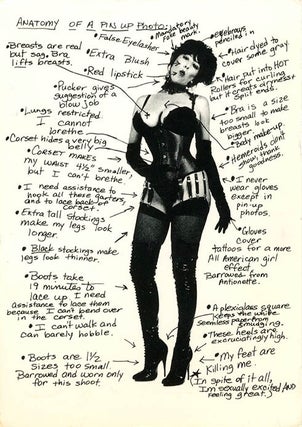 ANATOMY OF A PIN UP PHOTO:
• Breasts are real
but sag. Bra
lifts breasts.
• False Eyelashes
• Mandatory
fake beauty
mark.
• Extra Blush
• Red lipstick
• Pucker gives
suggestion of a
blow job
• Lungs restricted
I cannot
brethe.
• Corset hides a very big
belly
• Corset makes
my waist 4½" smaller,
but I can't brethe.
• I need assistance to
hook all these garters,
and to lace back of
corset.
• Extra tall stockings
make my legs look
longer
• Black stockings make
legs look thinner.
• Boots take
19 minutes to
lace up I need
assistance to lace them
because I can't bend over
in the corset.
• I can't walk and
can barely hobble.
• Boots are 1½
Sizes too small.
Borrowed and worn only
for this shoot.
• eyebrows
penciled in
• Hair dyed to
cover some gray
• Hair put into HOT
Rollers for curling
but it creates dryness,
split ends.
• Bra is a size
too small to make
breasts look
bigger.
• body make-up.
• Hemeroids don't
show, thank
goodness.
• I never
wear gloves
except in
pin-up
photos.
• Gloves
cover
tattoos for a more
All American girl
effect.
Barrowed from
Antionette.
• A plexiglass square
keeps the white
seamless paper from
smudging.
• These heels are
excruciatingly high.
• My feet are
Killing me.
* (In spite of it all,
I'm sexually excited AND
feeling great.)